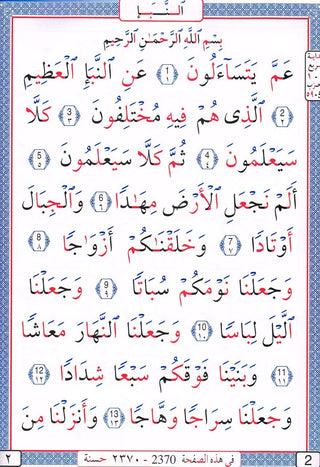 النبإ
بِسْمِ اللَّهِ الرَّحْمَٰنِ الرَّحِيمِ
عَمَّ يَتَسَاءَلُونَ 1 ١ عَنِ النَّبَإِ الْعَظِيمِ
2 ٢ الَّذِي هُمْ فِيهِ مُخْتَلِفُونَ 3 ٣ كَلَّا
سَيَعْلَمُونَ 4 ٤ ثُمَّ كَلَّا سَيَعْلَمُونَ 5 ٥
أَلَمْ نَجْعَلِ الْأَرْضَ مِهَٰدًا 6 ٦ وَالْجِبَالَ
أَوْتَادًا 7 ٧ وَخَلَقْنَٰكُمْ أَزْوَٰجًا 8 ٨
وَجَعَلْنَا نَوْمَكُمْ سُبَاتًا 9 ٩ وَجَعَلْنَا
الَّيْلَ لِبَاسًا 10 ١٠ وَجَعَلْنَا النَّهَارَ مَعَاشًا
11 ١١ وَبَنَيْنَا فَوْقَكُمْ سَبْعًا شِدَادًا 12 ١٢
وَجَعَلْنَا سِرَاجًا وَهَّاجًا 13 ١٣ وَأَنْزَلْنَا مِنَ
٢ في هذه الصفحة 2370 - ٢٣٧٠ حسنة 2